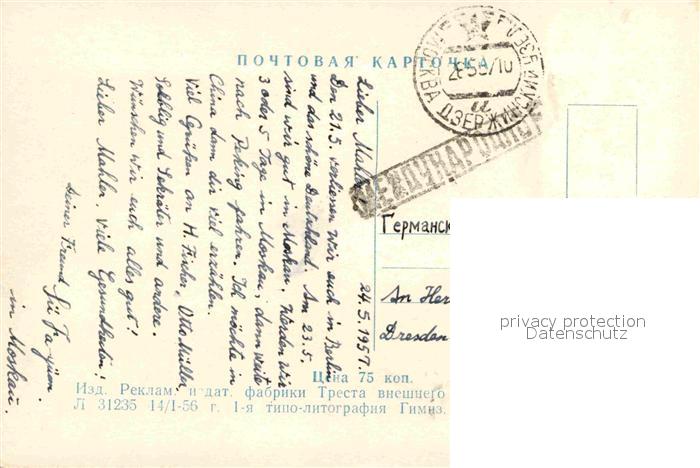 ПОЧТОВАЯ КАРТОЧКА
МОСКВА ДЗЕРЖИНС
МЕЖДУНАРОДНОЕ
24.5.1957.
Lieber Mahler
Den 21.5. verliessen wir euch in Berlin
und das schöne Deutschland. Am 23.5.
sind wir gut in Moskau. Werden wir
3 oder 5 Tage in Moskau, dann weite
nach Peking fahren. Ich möchte in
China dann dir viel erzählen.
Viel Grüßen an H. Fischer, Otto Müller,
und Sekretär und andere.
Wünschen wir euch alles gut!
Lieber Mahler, viele Gesundheiten!
Deiner Freund
in Moskau.
Германск
An Her
Dresden
privacy protection
Datenschutz
Цена 75 коп.
Изд. Реклам. издат. фабрики Треста внешнего
Л 31235 14/I-56 г. 1-я типо-литография Гимиз.